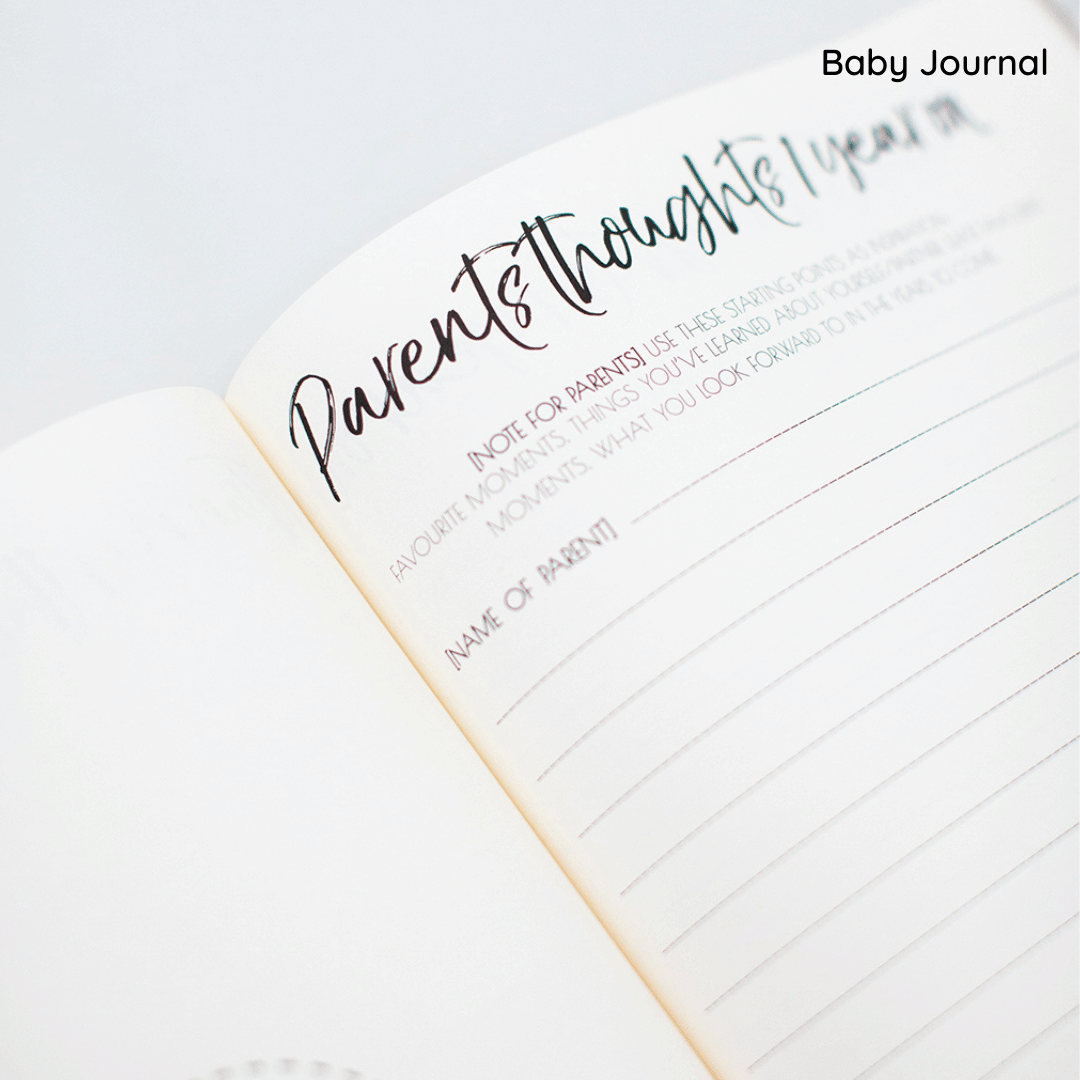 Baby Journal
Parents thoughts 1 year on
[NOTE FOR PARENTS] USE THESE STARTING POINTS AS INSPIRATION
FAVOURITE MOMENTS, THINGS YOU'VE LEARNED ABOUT YOURSELF/PARTNER,
MOMENTS, WHAT YOU LOOK FORWARD TO IN THE YEARS TO COME.
[NAME OF PARENT]